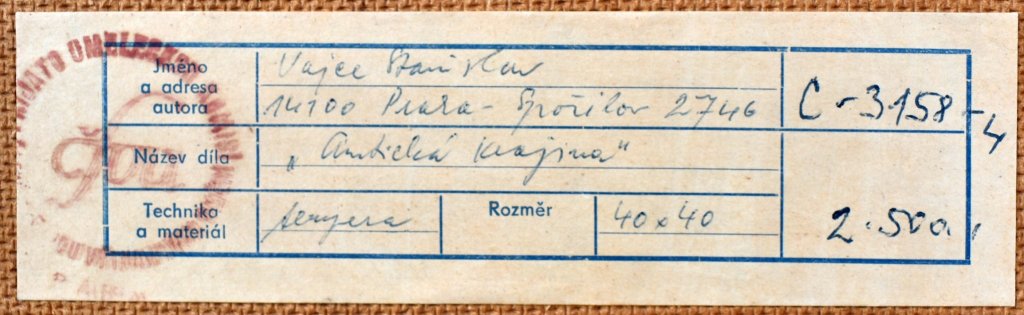 Jméno
a adresa
autora
Vajce Stanislav
14100 Praha - Spořilov 2746
C - 3158 - 4
Název díla
„Antická krajina"
Technika
a materiál
tempera
Rozměr
40x40
2.500,